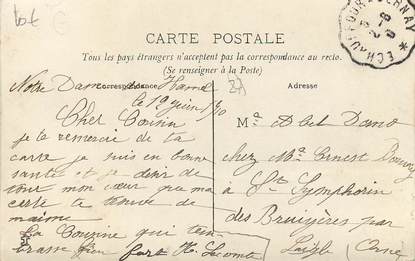 bt
ECHAUFFOUR A BERNAY
CARTE POSTALE
Tous les pays étrangers n'acceptent pas la correspondance au recto.
(Se renseigner à la Poste)
Correspondance
Adresse
Notre Dame du Hamel
le 19 juin 10
Cher Cousin
je te remercie de ta
carte je suis en bonne
santé et je désire de
tout mon cœur que ma
carte te trouve de
maime
La Couzine qui t'em
brasse bien fort H. Lecomte
Ma Abel
chez Ma Ernest
à St Symphorin
des Bruyères par
Laigle (Orne)